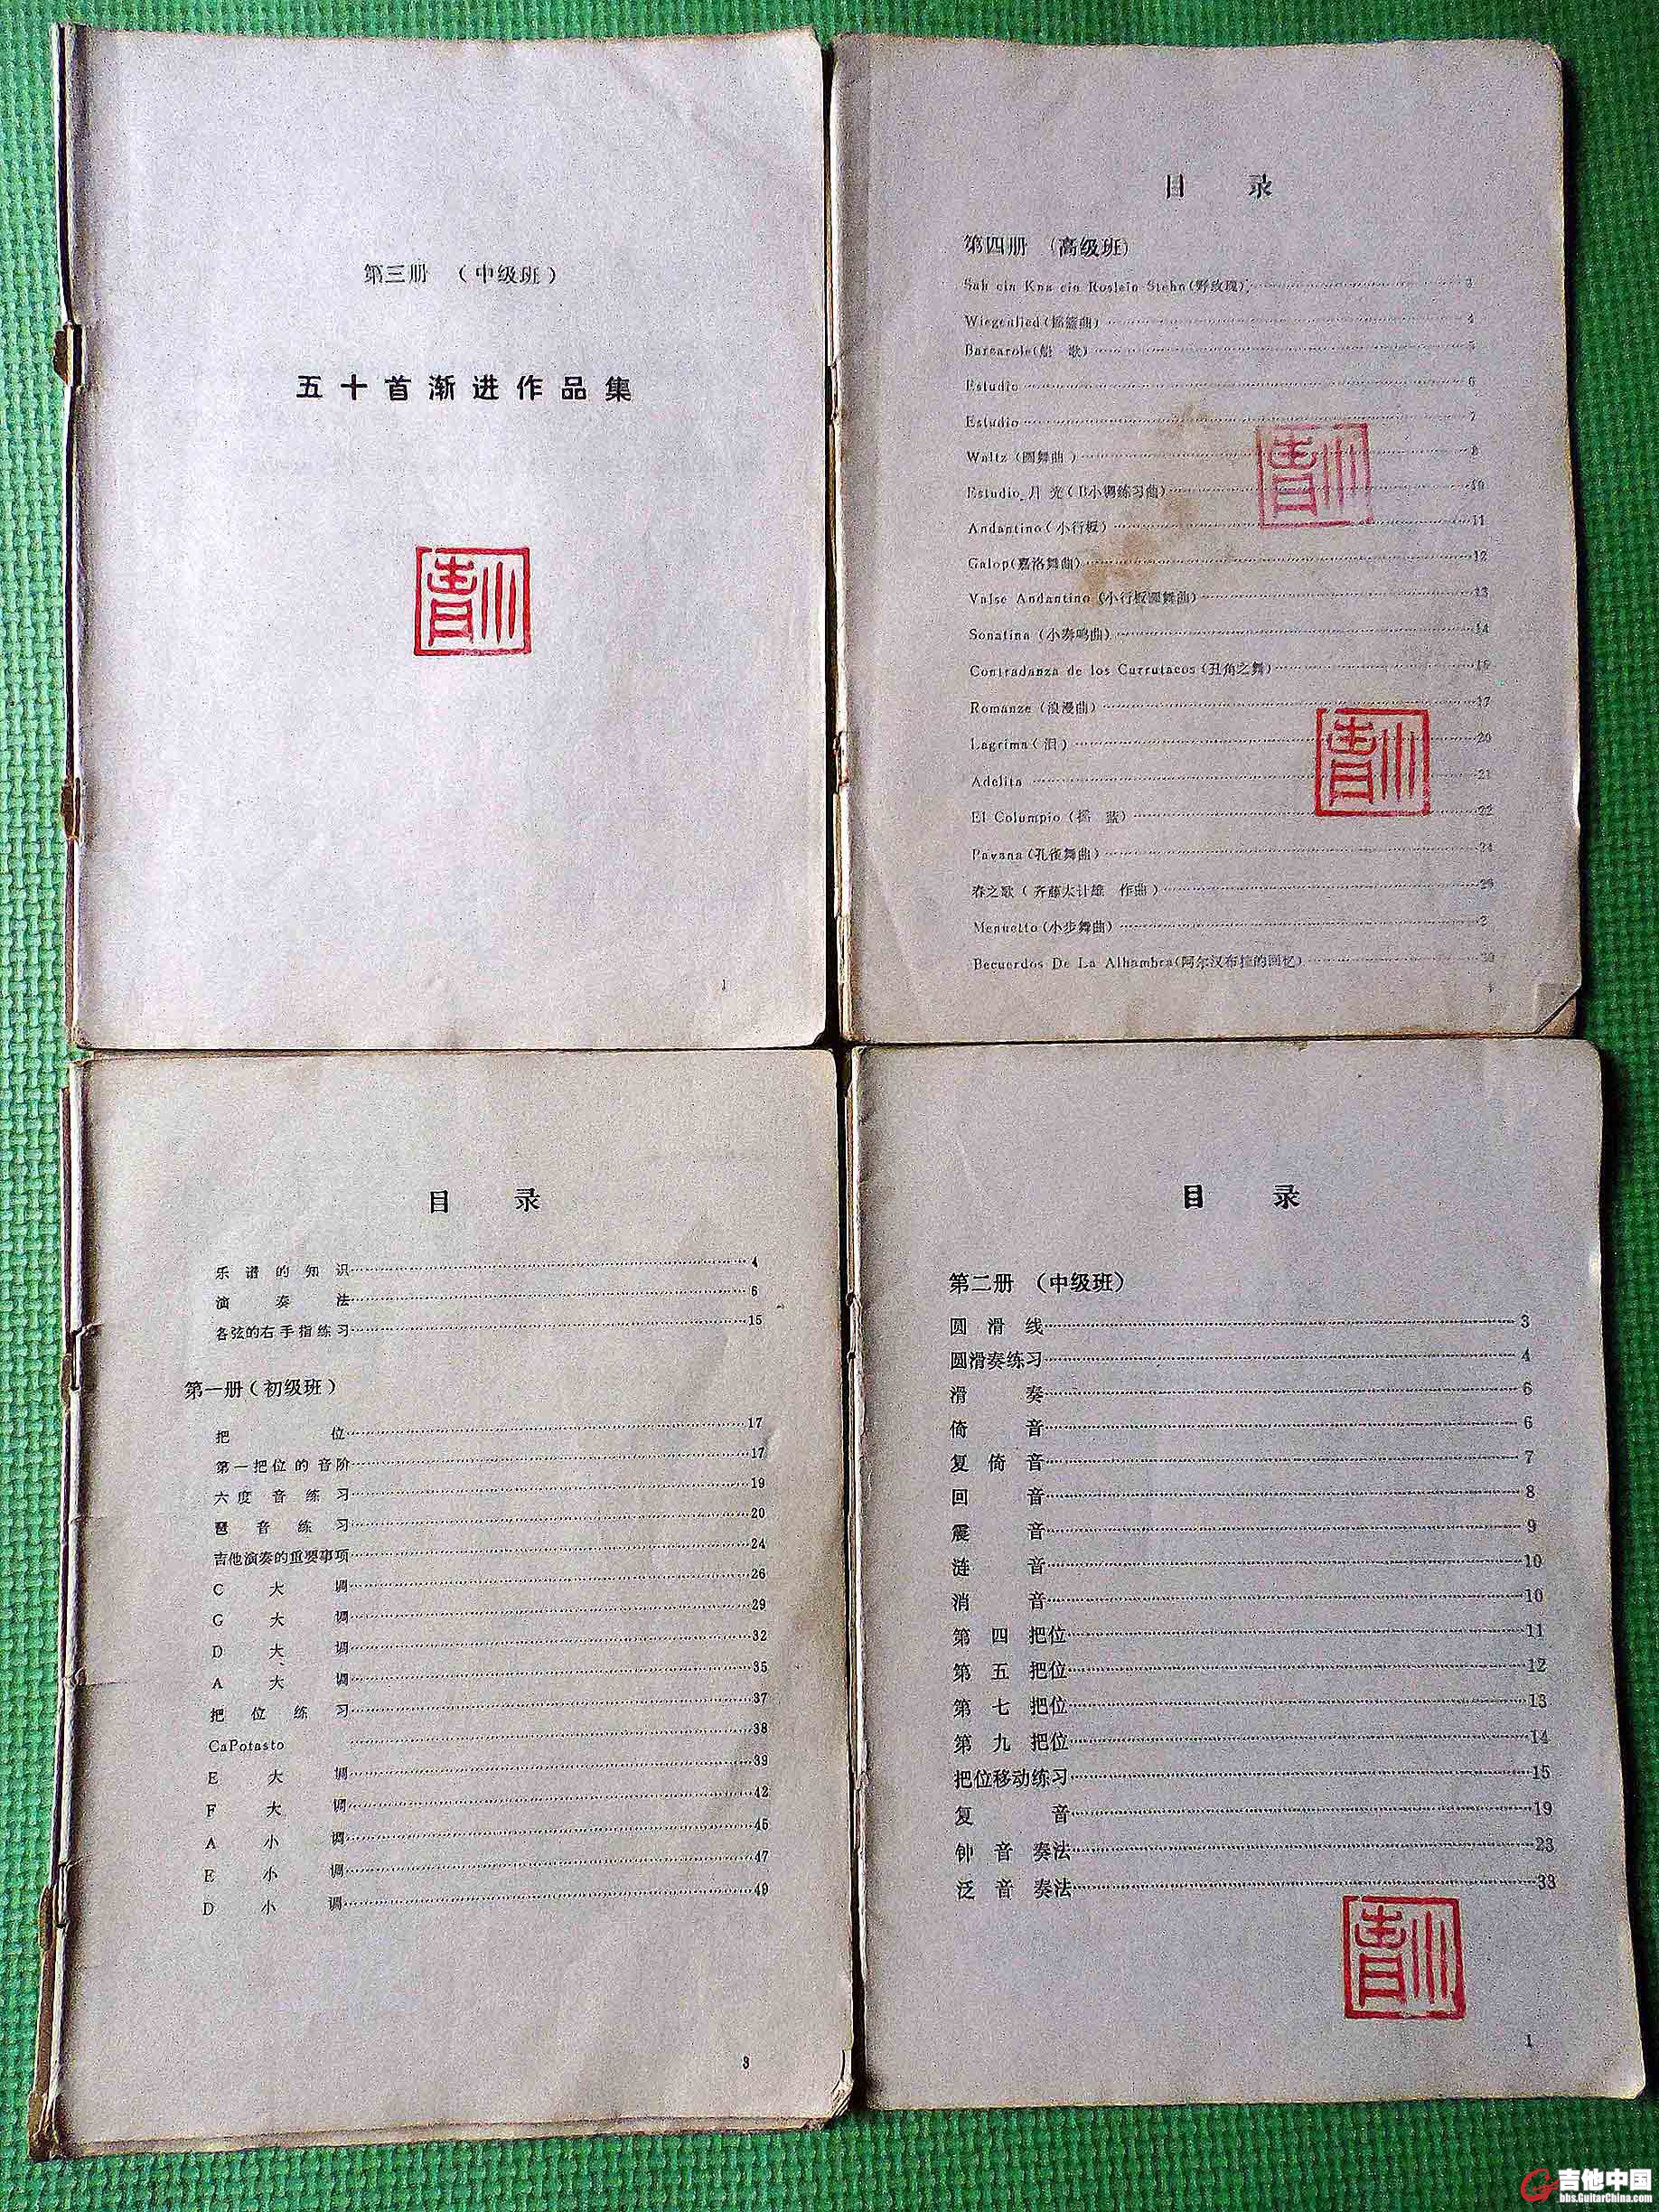 第三册 （中级班）
五十首渐进作品集
1
目 录
第四册 （高级班）
Sah ein Kna ein Roslein Stehn(野玫瑰) 3
Wiegenlied(摇篮曲) 4
Barcarole(船 歌) 5
Estudio 6
Estudio 7
Waltz (圆舞曲) 8
Estudio 月光(B小调练习曲) 10
Andantino(小行板) 11
Galop(嘉洛舞曲) 12
Valse Andantino(小行板圆舞曲) 13
Sonatina (小奏鸣曲) 14
Contradanza de los Currutacos(丑角之舞) 16
Romanze (浪漫曲) 17
Lagrima(泪) 20
Adelita 21
El Columpio (摇 蓝) 22
Pavana(孔雀舞曲) 24
春之歌(齐藤太计雄 作曲)
Menuetto(小步舞曲)
Becuerdos De La Alhambra(阿尔汉布拉的回忆) 30
目 录
乐谱的知识 4
演奏法 6
各弦的右手指练习 15
第一册(初级班)
把位 17
第一把位的音阶 17
六度音练习 19
琶音练习 20
吉他演奏的重要事项 24
C大调 26
G大调 29
D大调 32
A大调 35
把位练习 37
CaPotasto 38
E大调 39
F大调 42
A小调 45
E小调 47
D小调 49
3
目 录
第二册 (中级班)
圆滑线 3
圆滑奏练习 4
滑奏 6
倚音 6
复倚音 7
回音 8
震音 9
涟音 10
消音 10
第四把位 11
第五把位 12
第七把位 13
第九把位 14
把位移动练习 15
复音 19
钟音奏法 23
泛音奏法 33
1
吉他中国
bbs.GuitarChina.com